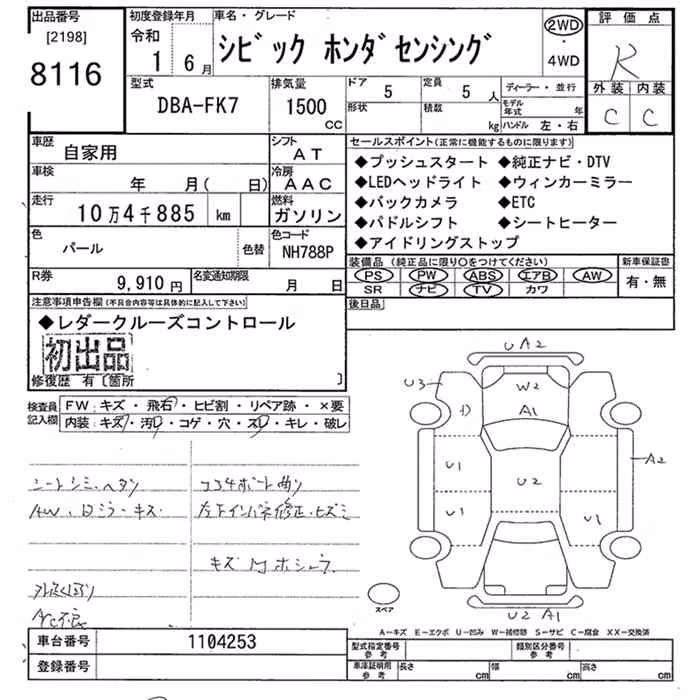 出品番号
[2198]
8116
初度登録年月
令和
1 6月
車名・グレード
シビック ホンダセンシング
2WD
・
4WD
評価点
R
外装 内装
C C
型式
DBA-FK7
排気量
1500
cc
ドア
5
定員
5 人
形状
積載
kg
ディーラー・並行
モデル年式 年
ハンドル 左・右
車歴
自家用
シフト
AT
車検
年 月( 日)
冷房
AAC
走行
10万4千885 km
燃料
ガソリン
色
パール
色替
色コード
NH788P
R券
9,910円
名変通知期限
月 日
セールスポイント(正常に機能するものに限ります)
◆プッシュスタート ◆純正ナビ・DTV
◆LEDヘッドライト ◆ウィンカーミラー
◆バックカメラ ◆ETC
◆パドルシフト ◆シートヒーター
◆アイドリングストップ
装備品 (純正品に限り○をつけてください)
PS PW ABS エアB AW
SR ナビ TV カワ
新車保証書
有・無
後日品
注意事項申告欄(不具合内容等は具体的に記入して下さい)
◆レダークルーズコントロール
初出品
修復歴 有〔箇所 〕
検査員記入欄
FW:キズ・飛石・ヒビ割・リペア跡・×要
内装:キズ・汚レ・コゲ・穴・スレ・キレ・破レ
シートシミ、ヘタリ
AW、日ミラーキズ
コア4ポート曲り
キズ
A/C不良
UA2
U3
W2
A1
U1
U2
A2
U1
U1
U2 A1
スペア
A－キズ E－エクボ U－凹み W－補修跡 S－サビ C－腐食 XX－交換済
車台番号
1104253
登録番号
型式指定番号
参考
類別区分番号
参考
車庫証明用
参考
長さ cm
幅 cm
高さ cm